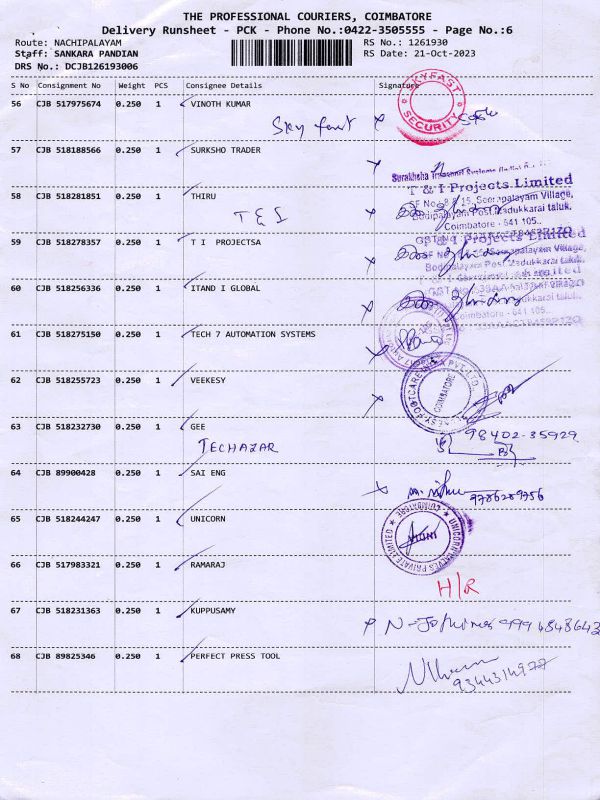 THE PROFESSIONAL COURIERS, COIMBATORE
Delivery Runsheet - PCK - Phone No.:0422-3505555 - Page No.:6
Route: NACHIPALAYAM RS No.: 1261930
Staff: SANKARA PANDIAN RS Date: 21-Oct-2023
DRS No.: DCJB126193006
S No Consignment No Weight PCS Consignee Details Signature
56 CJB 517975674 0.250 1 VINOTH KUMAR
SKYFAST SECURITY
Sky fast
57 CJB 518188566 0.250 1 SURKSHO TRADER
58 CJB 518281851 0.250 1 THIRU
T & I Projects Limited
T & I
59 CJB 518278357 0.250 1 T I PROJECTSA
60 CJB 518256336 0.250 1 ITAND I GLOBAL
61 CJB 518275150 0.250 1 TECH 7 AUTOMATION SYSTEMS
62 CJB 518255723 0.250 1 VEEKESY
COIMBATORE
63 CJB 518232730 0.250 1 GEE
TECHAZAR
98402-35929
64 CJB 89900428 0.250 1 SAI ENG
9786289756
65 CJB 518244247 0.250 1 UNICORN
COIMBATORE
66 CJB 517983321 0.250 1 RAMARAJ
H/R
67 CJB 518231363 0.250 1 KUPPUSAMY
68 CJB 89825346 0.250 1 PERFECT PRESS TOOL
9344314977